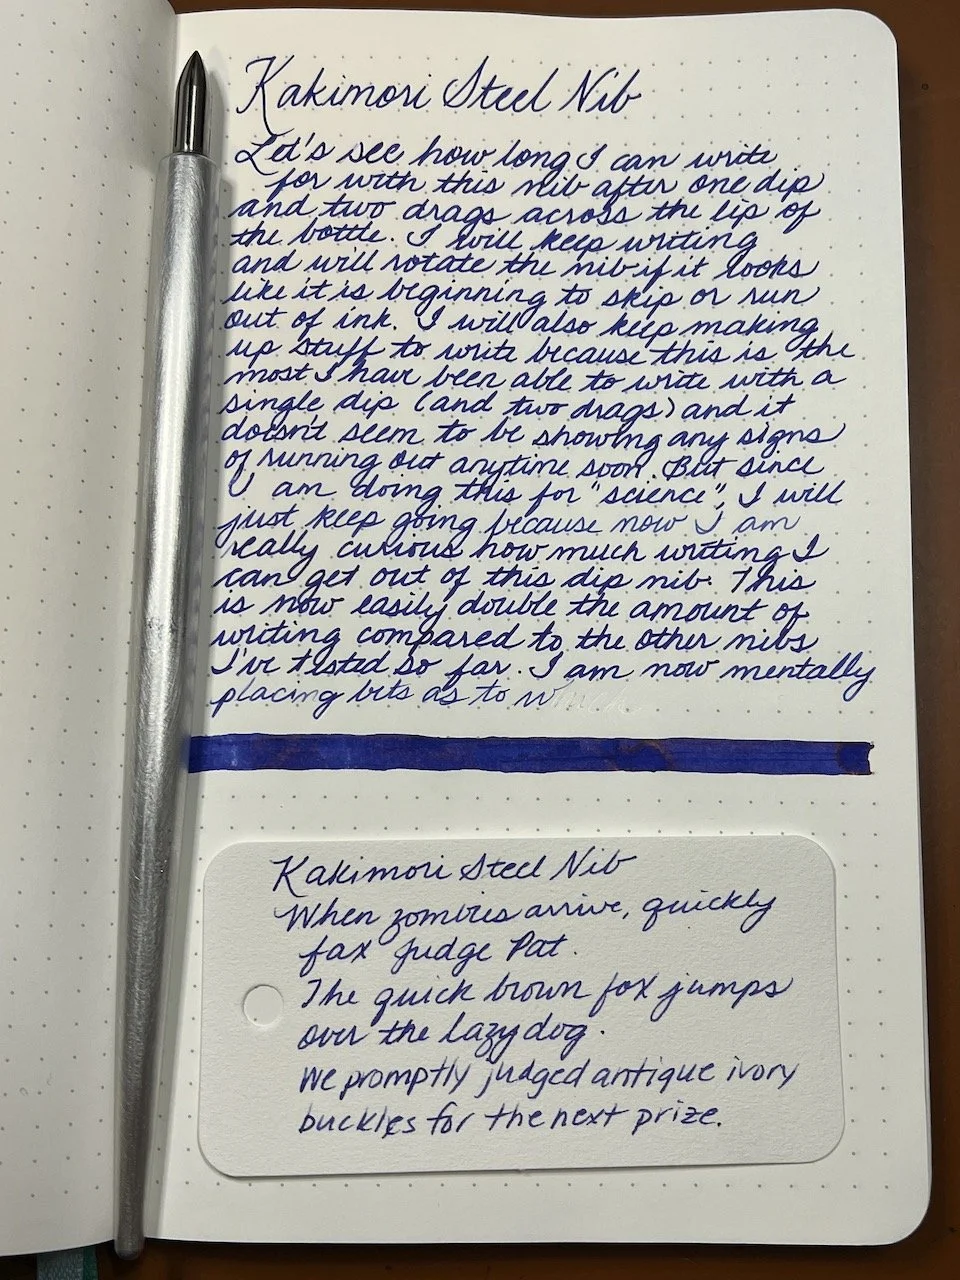 Kakimori Steel Nib
Let's see how long I can write
for with this nib after one dip
and two drags across the lip of
the bottle. I will keep writing
and will rotate the nib if it looks
like it is beginning to skip or run
out of ink. I will also keep making
up stuff to write because this is the
most I have been able to write with a
single dip (and two drags) and it
doesn't seem to be showing any signs
of running out anytime soon. But since
I am doing this for "science", I will
just keep going because now I am
really curious how much writing I
can get out of this dip nib. This
is now easily double the amount of
writing compared to the other nibs
I've tested so far. I am now mentally
placing bets as to which
Kakimori Steel Nib
When zombies arrive, quickly
fax Judge Pat.
The quick brown fox jumps
over the lazy dog.
We promptly judged antique ivory
buckles for the next prize.